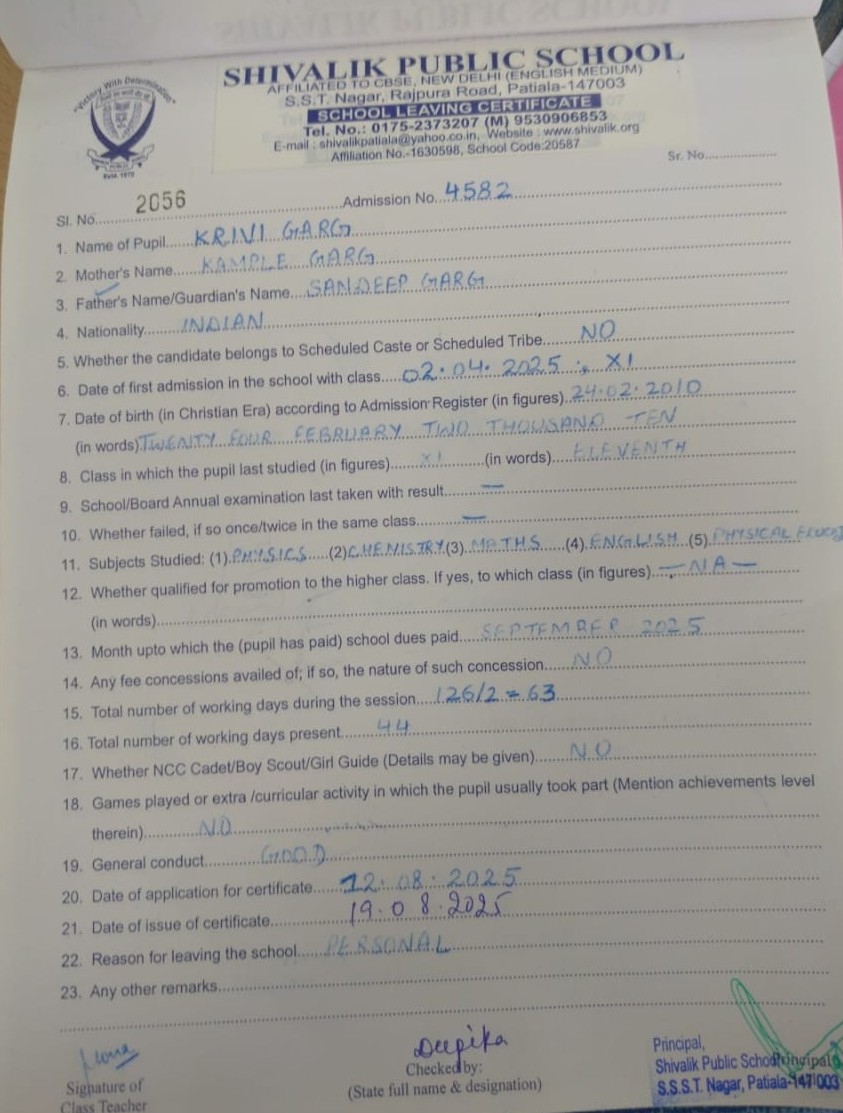 "Victory With Determination"
ESTD. 1970
SHIVALIK PUBLIC SCHOOL
AFFILIATED TO CBSE, NEW DELHI (ENGLISH MEDIUM)
S.S.T. Nagar, Rajpura Road, Patiala-147003
SCHOOL LEAVING CERTIFICATE
Tel. No.: 0175-2373207 (M) 9530906853
E-mail : shivalikpatiala@yahoo.co.in, Website : www.shivalik.org
Affiliation No.-1630598, School Code:20587
Sr. No.
Sl. No. 2056 Admission No. 4582
1. Name of Pupil KRIVI GARG
2. Mother's Name KAMPLE GARG
3. Father's Name/Guardian's Name SANDEEP GARG
4. Nationality INDIAN
5. Whether the candidate belongs to Scheduled Caste or Scheduled Tribe NO
6. Date of first admission in the school with class 02.04.2025 ; XI
7. Date of birth (in Christian Era) according to Admission Register (in figures) 24.02.2010
(in words) TWENTY FOUR FEBRUARY TWO THOUSAND TEN
8. Class in which the pupil last studied (in figures) XI (in words) ELEVENTH
9. School/Board Annual examination last taken with result —
10. Whether failed, if so once/twice in the same class —
11. Subjects Studied: (1) PHYSICS (2) CHEMISTRY (3) MATHS (4) ENGLISH (5) PHYSICAL
12. Whether qualified for promotion to the higher class. If yes, to which class (in figures) — NA —
(in words)
13. Month upto which the (pupil has paid) school dues paid SEPTEMBER 2025
14. Any fee concessions availed of; if so, the nature of such concession NO
15. Total number of working days during the session 126/2 = 63
16. Total number of working days present 44
17. Whether NCC Cadet/Boy Scout/Girl Guide (Details may be given) NO
18. Games played or extra /curricular activity in which the pupil usually took part (Mention achievements level
therein) NO
19. General conduct GOOD
20. Date of application for certificate 12.08.2025
21. Date of issue of certificate 19.08.2025
22. Reason for leaving the school PERSONAL
23. Any other remarks
Deepika
Signature of
Class Teacher
Checked by:
(State full name & designation)
Principal,
Shivalik Public School
Principal
S.S.S.T. Nagar, Patiala-147 003